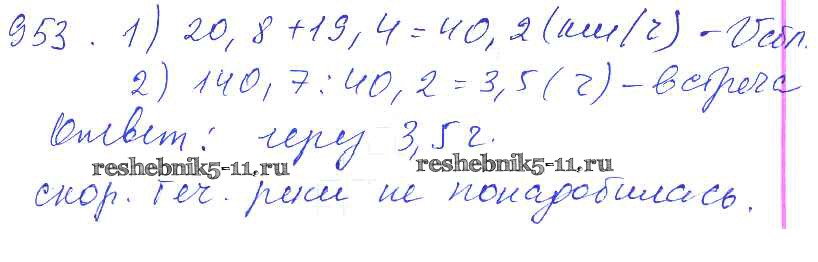 953. 1) 20,8 + 19,4 = 40,2 (км/ч) - Vсбл.
2) 140,7 : 40,2 = 3,5 (ч) - встреча
Ответ: через 3,5 ч.
reshebnik5-11.ru reshebnik5-11.ru
скор. теч. реки не понадобилась.